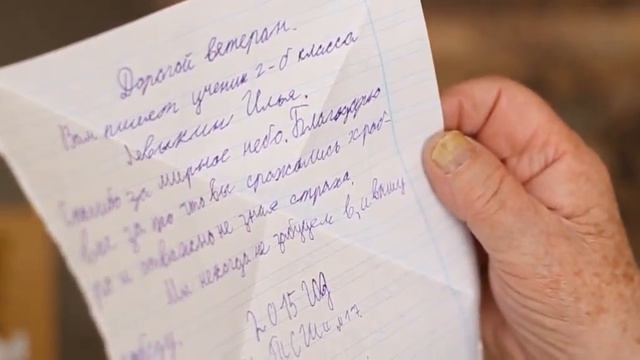 Дорогой ветеран.
Вам пишет ученик 2-б класса
Левыкин Илья.
Спасибо за мирное небо. Благодарю
вас за то что вы сражались храб-
ро и отважно не зная страха.
Мы никогда не забудем в, и вашу
победу.
2015 год
ПСШ №17